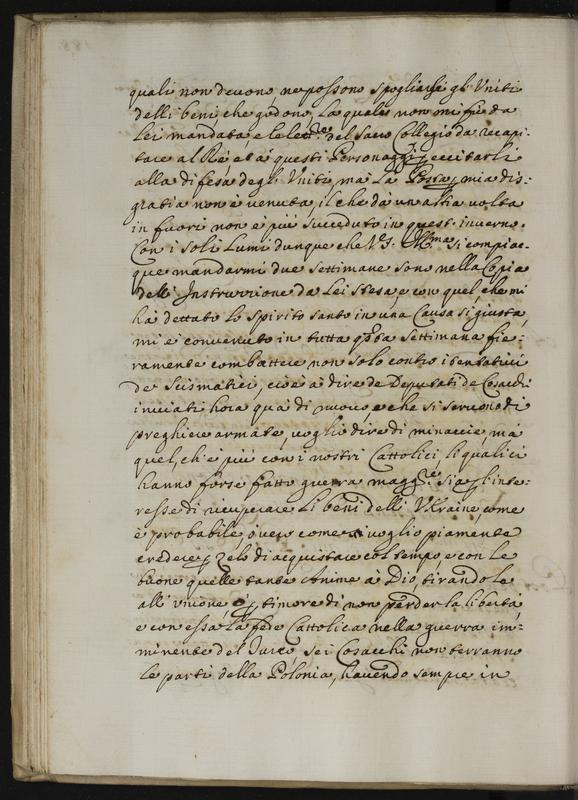 quali non devono, ne possono spogliarsi gl' Uniti
delli beni che godono, La quale non mi fù da
Lei mandata, e le lett.re del Sacro Collegio da recapi-
tare al Ré, et à questi Personaggi p eccitarli
alla difesa degl' Uniti, mà La Posta p mia dis-
gratia non è venuta, il che da un' altra volta
in fuori non è più succeduto in quest' inverno.
Con i soli Lumi dunque che V.S. Ill.ma si compiac-
que mandarmi due settimane sono nella Copia
dell' Instruzzione da Lei stesa, e con quel che mi
hà dettato Lo Spirito santo in una Causa si giusta,
mi è convenuto in tutta q.sta settimana fie-
ramente combattere non solo contro i tentativi
de Scismatici, cioè a dire de Deputati de Cosacchi
inviati hora quà di nuovo, e che si servono di
preghiere armate, voglio dire di minaccie, mà
quel, ch' è più con i nostri Cattolici, li quali ci
hanno forse fatto guerra magg.re, sia p l' inte-
resse di ricuperare Li beni dell' Ukraine, come
è probabile, ò vero come voglio piamente
credere p zelo di acquistare col tempo, e con le
buone quelle tante Anime à Dio, tirandole
all' unione, e p timore di non perder la libertà
e con essa La fede Cattolica nella guerra im-
minente del Turco se i Cosacchi non terranno
le parti della Polonia, havendo sempre in